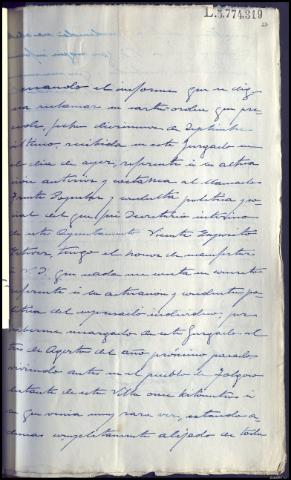 L.3.774.319
el informe que se dig
na reclamar en carta-orden que pre
cede, fecha diecinueve de Septiembre
último, recibida en este Juzgado en
el día de ayer, referente a la actua
ción anterior y al llamado
Frente Popular y conducta política y so
cial del que fué Secretario interino
de este Ayuntamiento Vicente
tengo el honor de manifestar
a V.S. que nada me consta en concreto
referente a su actuación y conducta po
lítica del expresado individuo, por
haberme encargado de este Juzgado el
tres de Agosto del año próximo pasado
viviendo antes en el pueblo de
distante de esta Villa once kilómetros a
la que venía muy rara vez, estando a
demás completamente alejado de toda